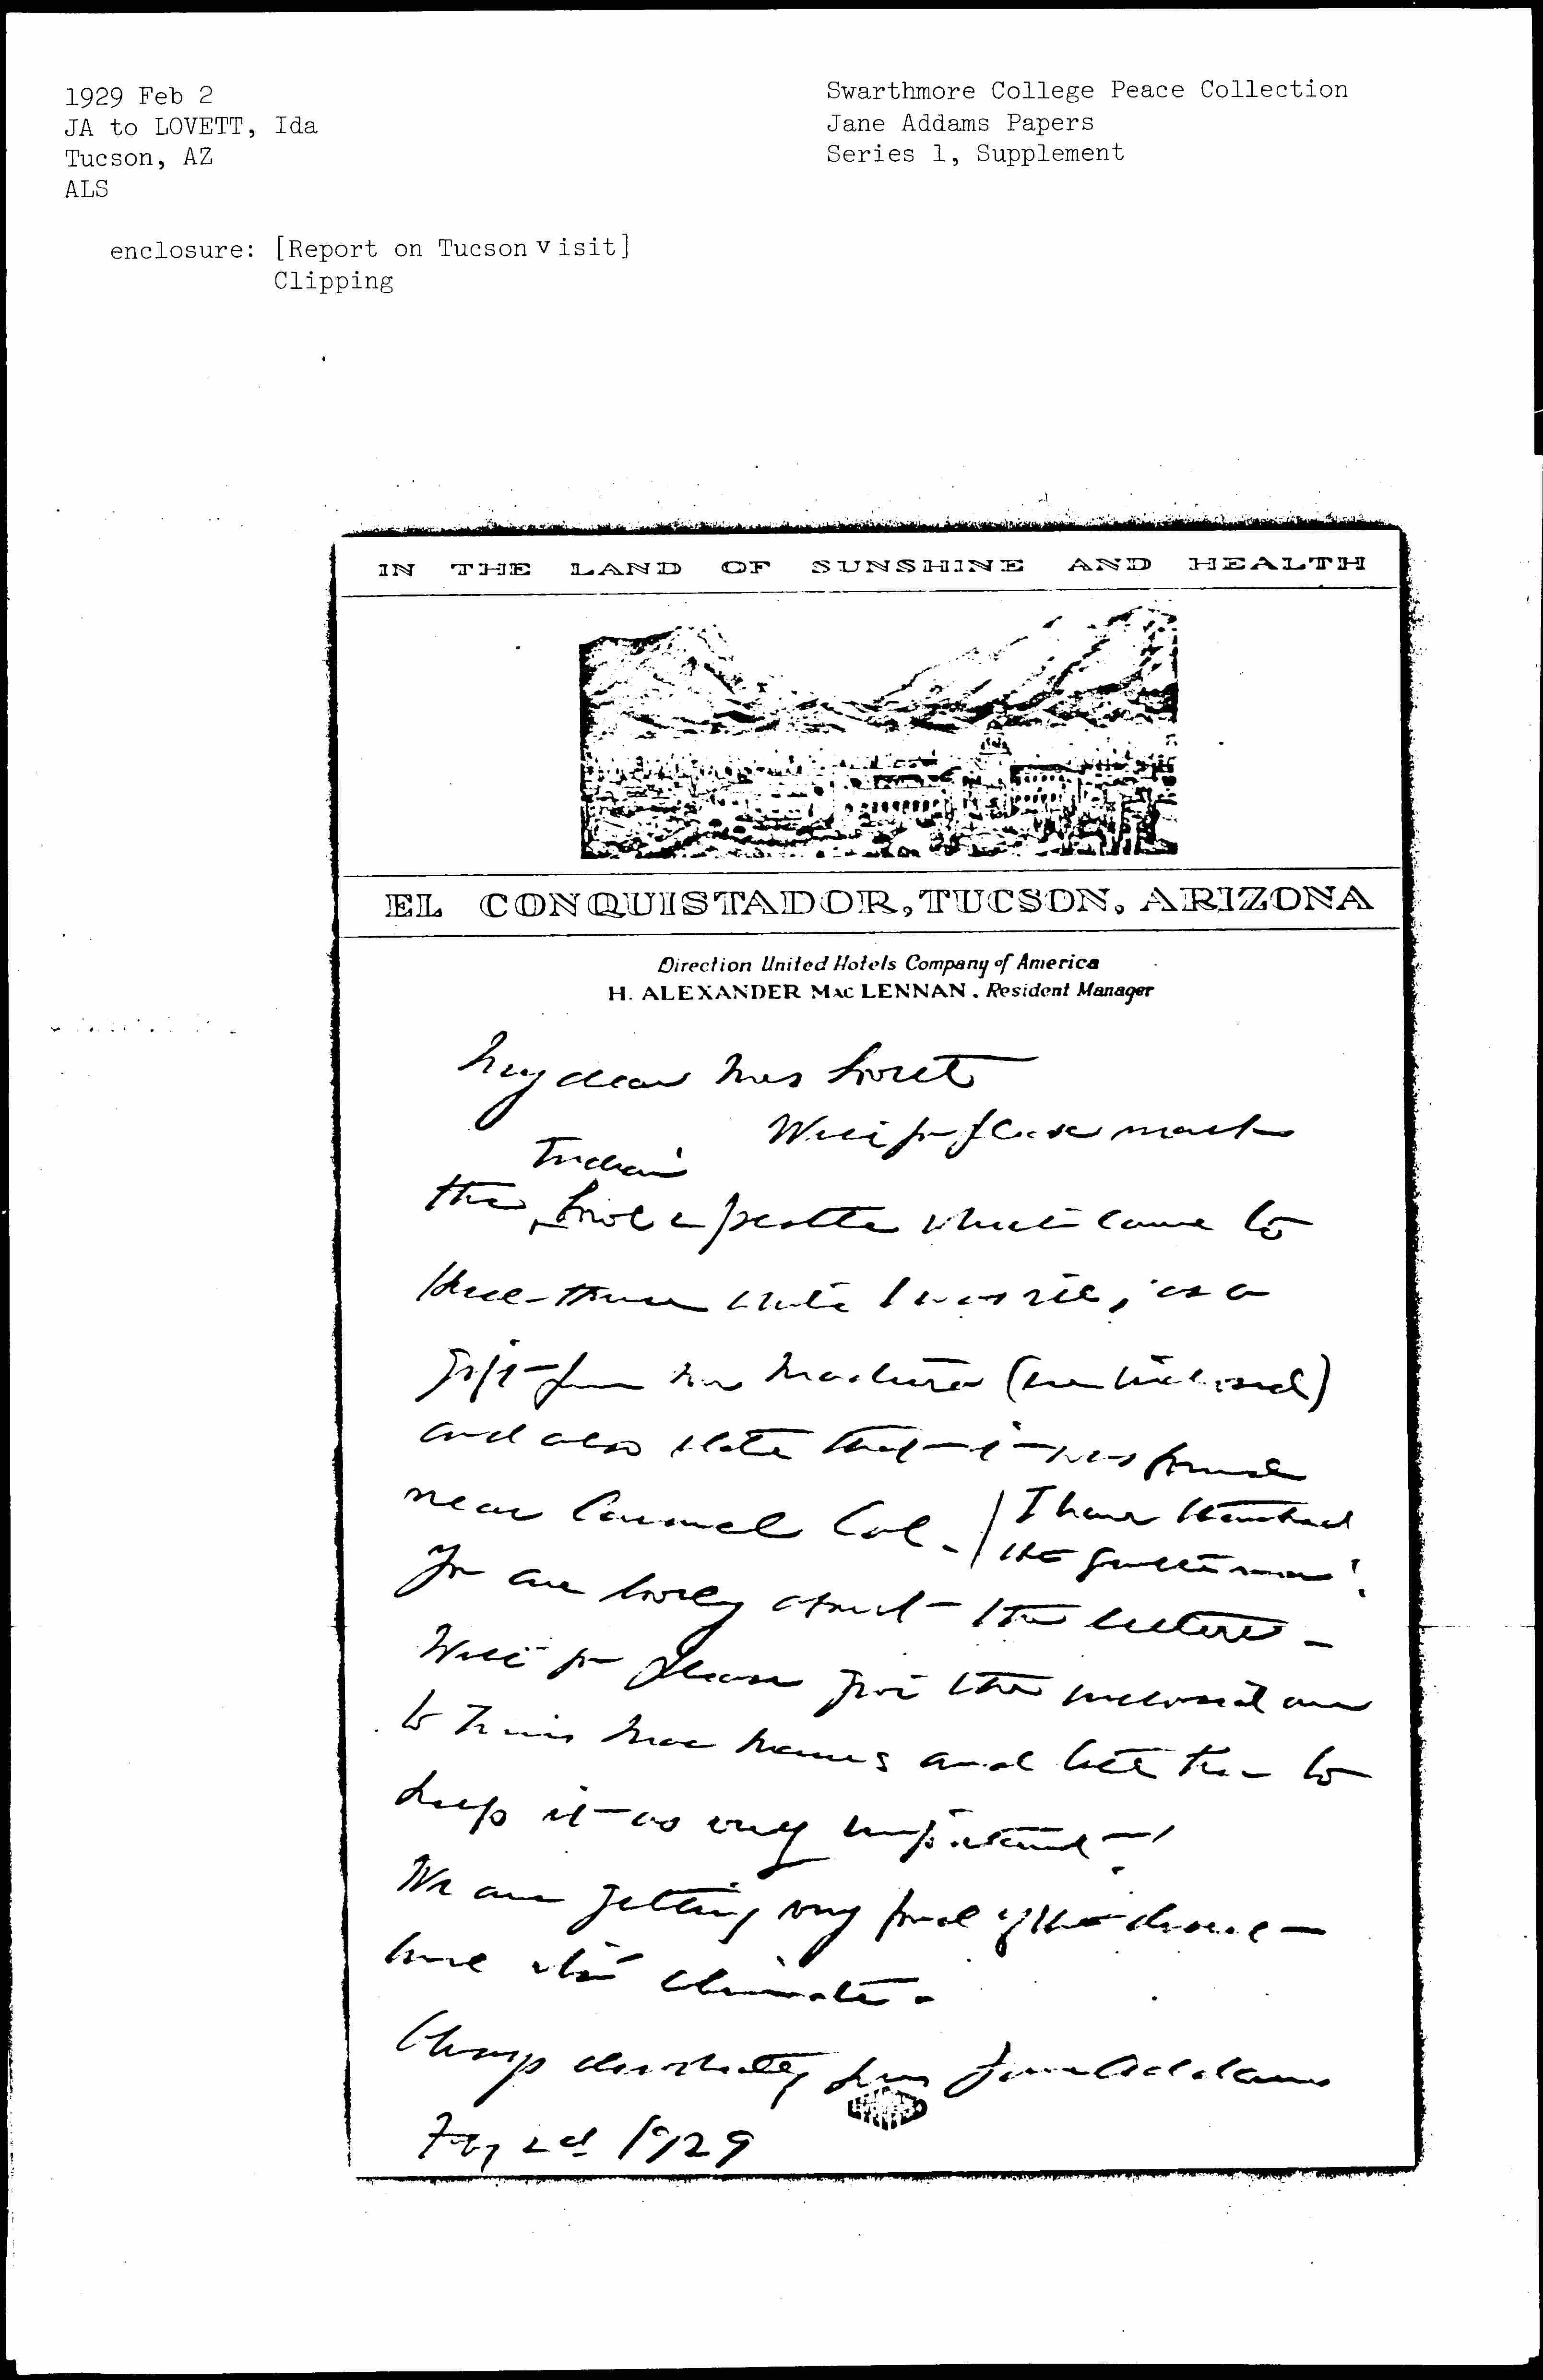 1929 Feb 2
JA to LOVETT, Ida
Tucson, AZ
ALS
enclosure: [Report on Tucson Visit]
Clipping
Swarthmore College Peace Collection
Jane Addams Papers
Series 1, Supplement
IN THE LAND OF SUNSHINE AND HEALTH
EL CONQUISTADOR, TUCSON, ARIZONA
Direction United Hotels Company of America
H. ALEXANDER MAC LENNAN, Resident Manager
My dear Mrs Lovett
Will you please mark
Indian
the bowl & pestle which came to
Hull-House while I was ill, as a
gift from Mr (see enclosed)
and also state that it was found
near Carmel Cal. / I have thanked
the gentleman!
You are lovely about the letters -
Will you please give the enclosed one
to and tell her to
keep it as very important!
We are getting very fond of the
love this climate.
Always devotedly yours Jane Addams
Feby 2d 1929